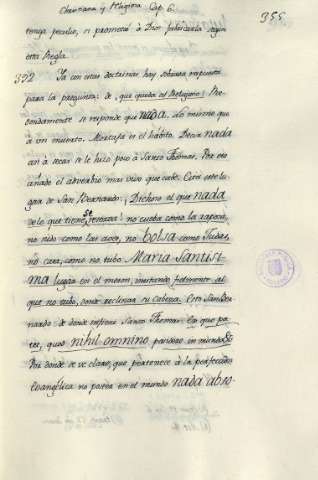 Christiana y Religiosa Cap. 6.
355
tenga peculio, si prometió à Dios pobreza la segun
esta Regla.
392 Ya con estas doctrinas hay sobrada respuesta
para la pregunta: de, que queda el Religioso? Ro-
tundamente si responde que nada. Lo mismo que
à un muerto. Mortaja es el hábito. Decir nada
an à secas se le hizo poco à Santo Thomas. Por eso
añade el adverbio mas vivo que cabe. Cita este lu-
gar de San Bernardo: Dichoso el que nada
de lo que tiene se reserva! no cueba como la raposa,
no nido como las aves, no bolsa como Judas,
no casa, como no tubo Maria Santisi-
ma lugar en el meson, imitando fielmente al
que no tubo, donde reclinar su Cabeza. Esto San Ber-
nardo: de donde infiere Santo Thomas: Ex quo pa-
tet, quod nihil omnino possidere in mundo
Por donde se ve claro, que pertenece à la perfeccion
Evangélica no poseer en el mundo nada abso-